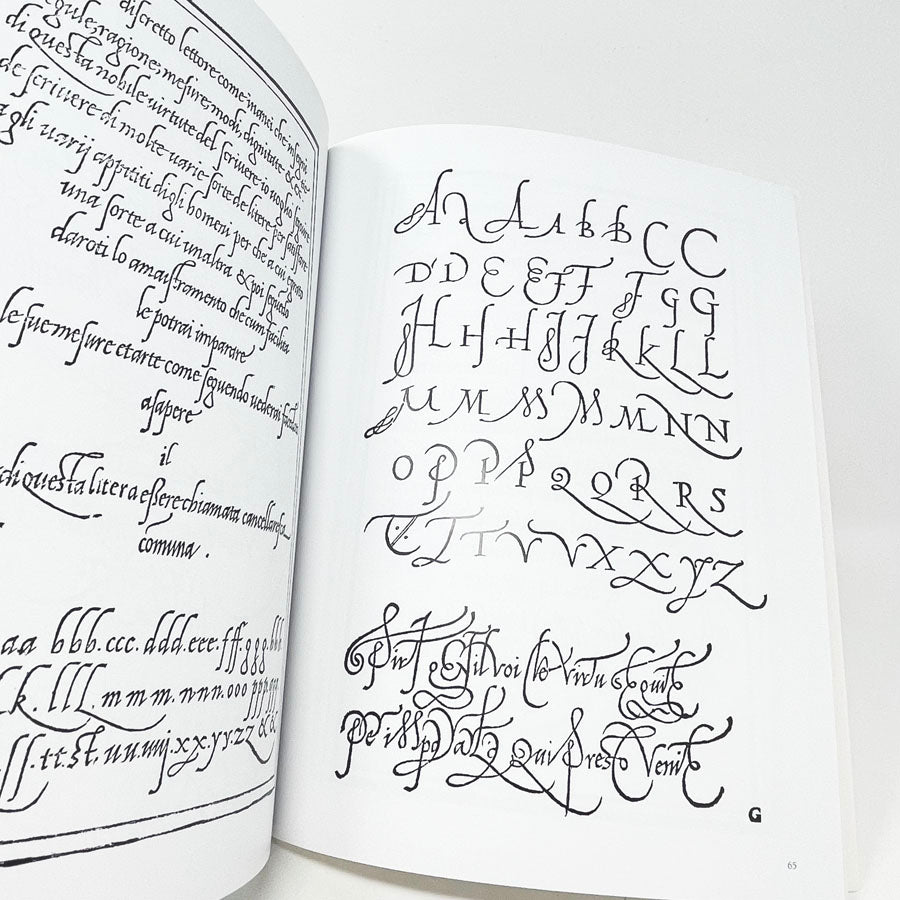 discretto lettore come inanci che insegni
egule, ragione, mesure, modi, dignitate &
di questa nobile uirtute del scriuere io uoglio seguire
de scriuere di molte uarie sorte de litere per satisffare
agli uarij appititi di gli homeni per che a cui e grato
una sorte a cui unaltra & poi seguito
daroti lo amaistramento che cum facilita
le potrai imparare
le sue mesure et arte come seguendo uederai
asapere
il
di questa litera essere chiamata cancellaresca
comuna .
aa bbb.ccc.ddd.eee.fff.ggg.hhh
k.lll.mmm.nnn.ooo ppp.qqq
ss.tt.st.uu.uuij.xx.yy.zz &&
A A A A b b b C C
D D E E F F F G G
H H H H J J k k L L
M M M M M N N
O P P P P Q Q R R S
T T T V V V X X Y Z
Spirto gentil voi che virtu seguite
Qui Presto Venite
G
65